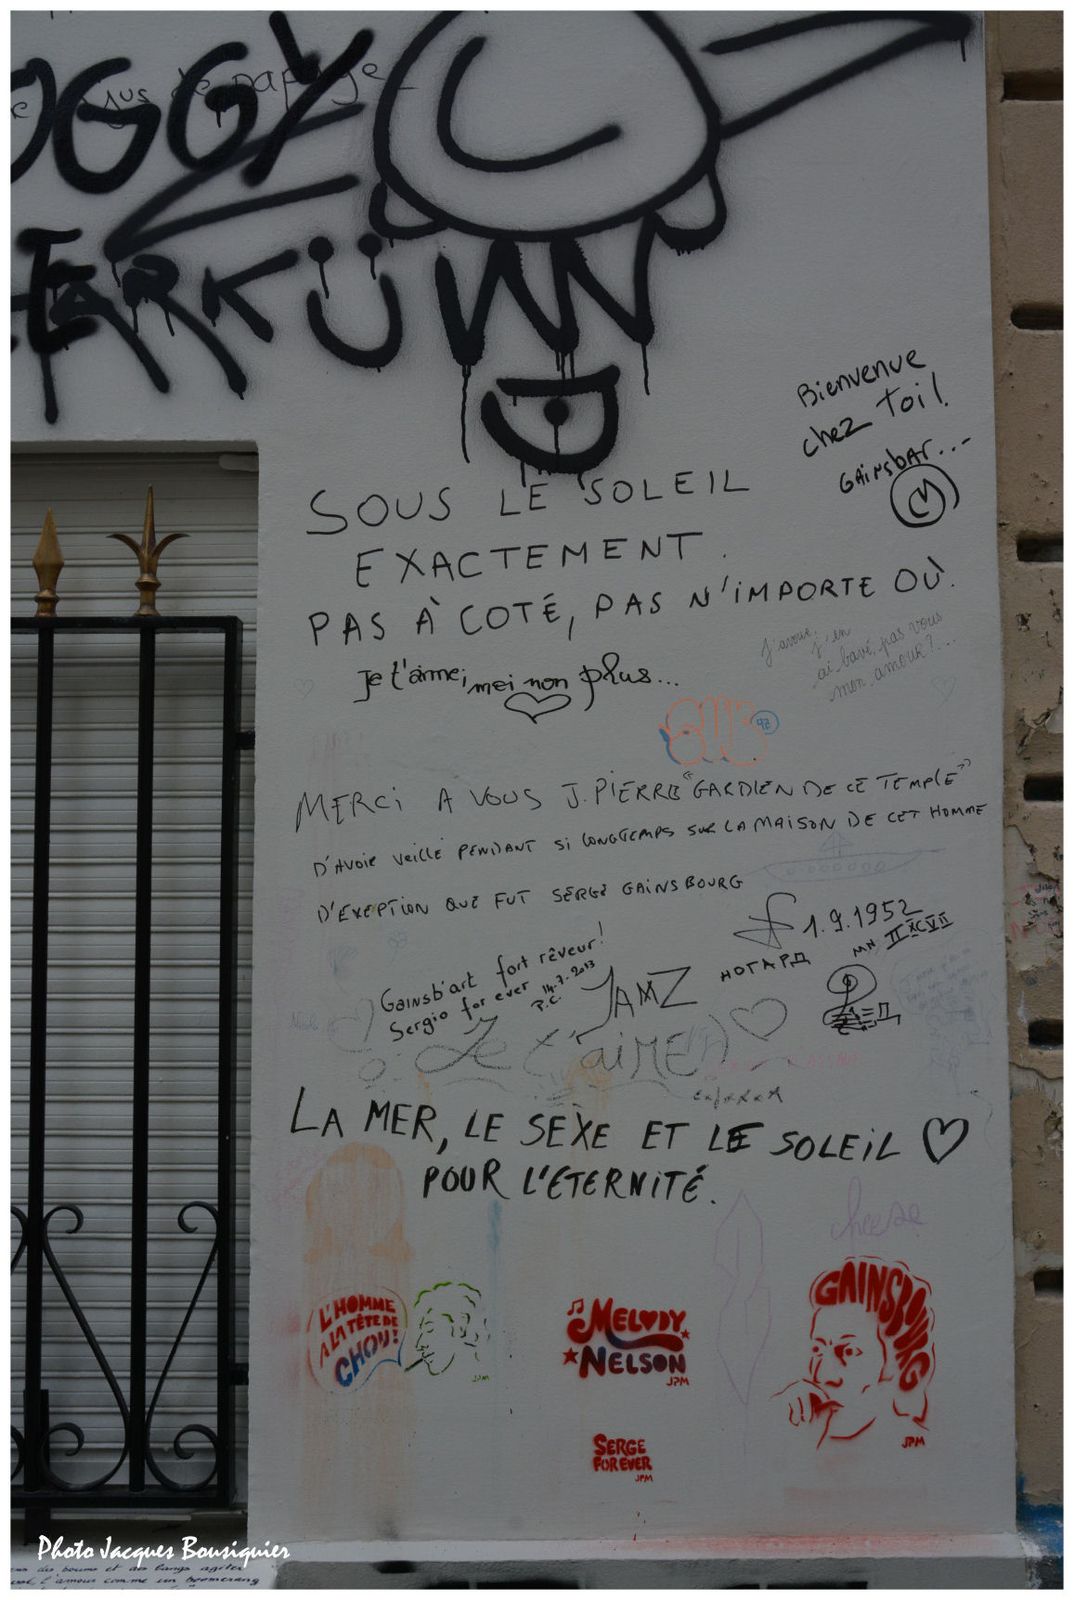 OGGY
us de papage
ERKÜNN
Bienvenue
chez toi!
GAiNsbAr...
SOUS LE SOLEIL
EXACTEMENT.
PAS À COTÉ, PAS N'IMPORTE OÙ.
J'avoue, j'en
ai bavé, pas vous
mon amour?...
Je t'aime, moi non plus...
92
MERCi A VOUS J. PIERRE "GARDIEN DE CE TEMPLE"
D'AVOIR VEILLE PENDANT SI LONGTEMPS SUR LA MAISON DE CET HOMME
D'EXEPTION QUE FUT SERGE GAINSBOURG
1.9.1952
НОГАРД
Gainsb'art fort rêveur!
Sergio for ever 14.7.2013
P.C.
JAMZ
Je t'aime
LA MER, LE SEXE ET LE SOLEIL
POUR L'ETERNITÉ.
cheese
L'HOMME
A LA TÊTE DE
CHOU!
JPM
MELODY
NELSON
JPM
GAINSBOURG
JPM
SERGE
FOR EVER
JPM
Photo Jacques Bousiquier
l'amour comme un boomerang